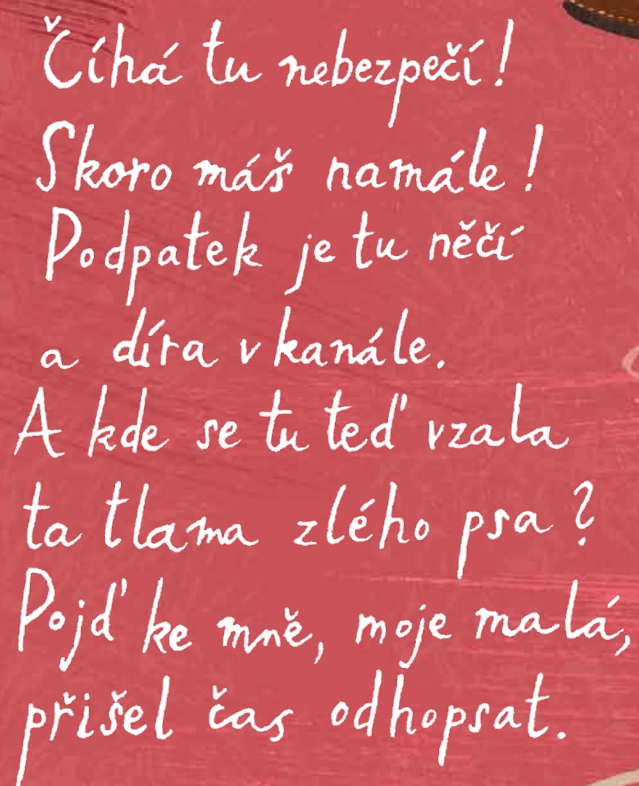 Číhá tu nebezpečí!
Skoro máš namále!
Podpatek je tu něčí
a díra v kanále.
A kde se tu teď vzala
ta tlama zlého psa?
Pojď ke mně, moje malá,
přišel čas odhopsat.